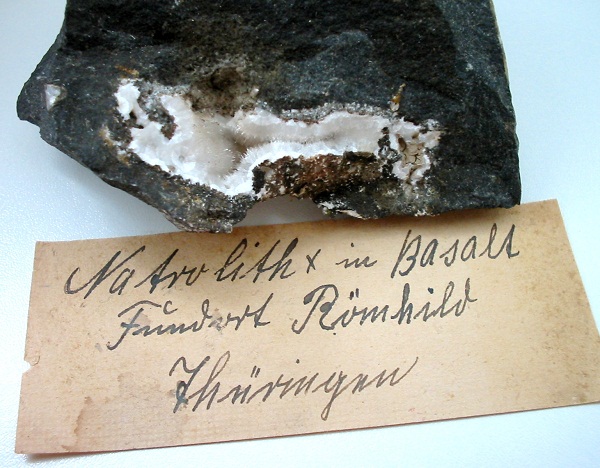 Natrolith x in Basalt
Fundort Römhild
Thüringen